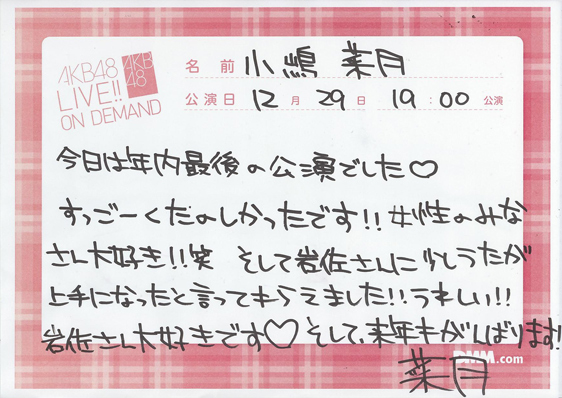 AKB48
LIVE!!
ON DEMAND
AKB
48
名前 小嶋 菜月
公演日 12月 29日 19:00 公演
今日は年内最後の公演でした♡
すっごーくたのしかったです!!女性のみな
さん大好き!!笑 そして岩佐さんに少しうたが
上手になったと言ってもらえました!!うれしい!!
岩佐さん大好きです♡そして、来年もがんばります!
DMM.com
菜月